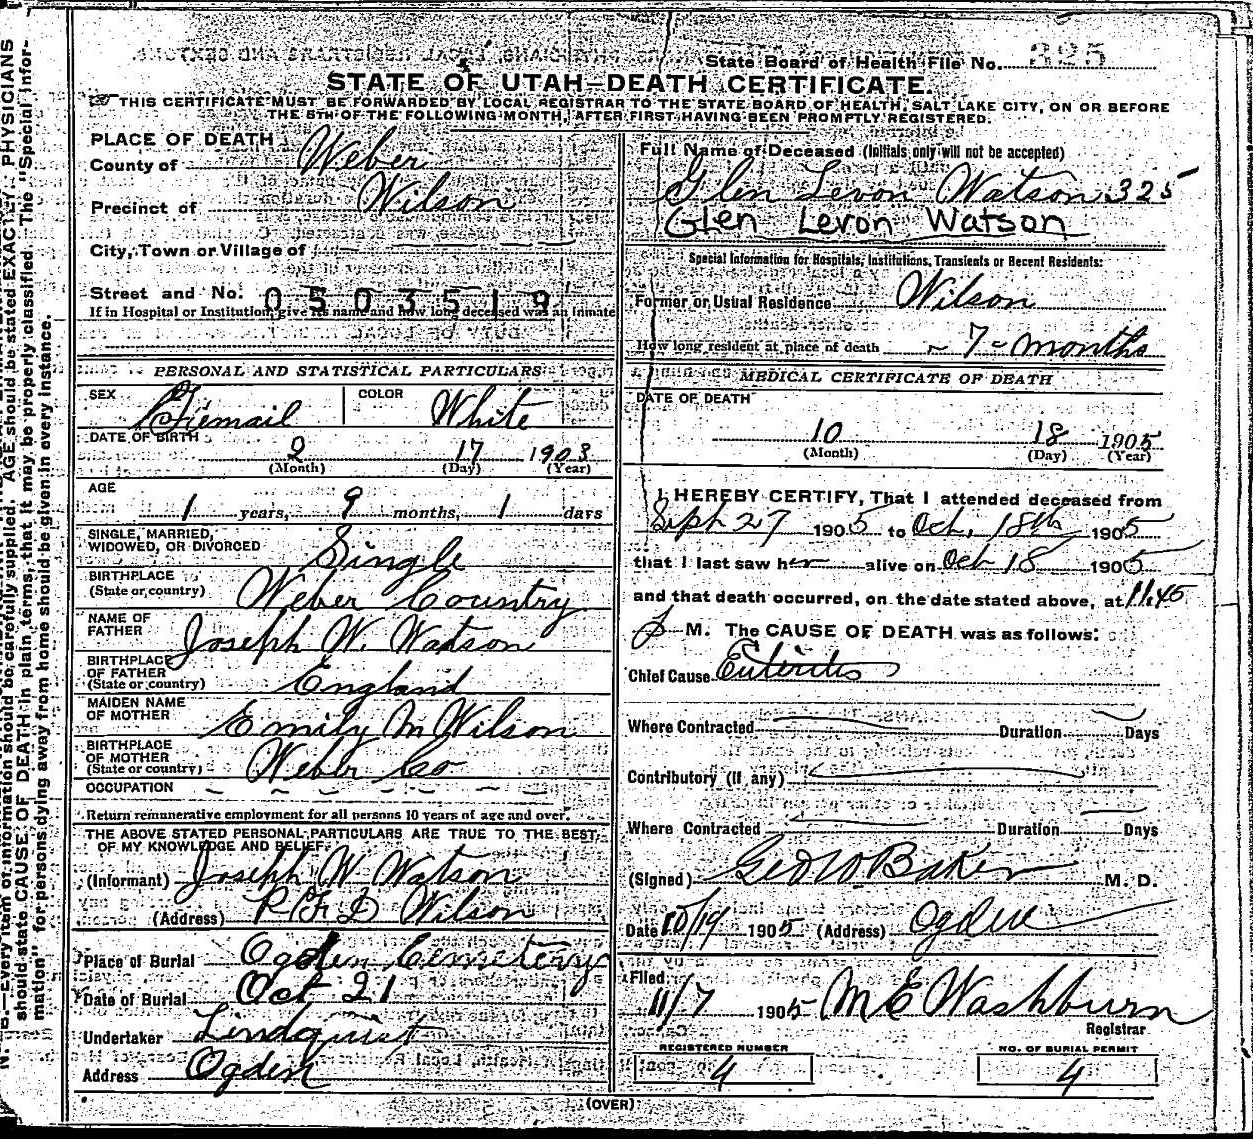 State Board of Health File No. 325
STATE OF UTAH—DEATH CERTIFICATE.
THIS CERTIFICATE MUST BE FORWARDED BY LOCAL REGISTRAR TO THE STATE BOARD OF HEALTH, SALT LAKE CITY, ON OR BEFORE
THE 5TH OF THE FOLLOWING MONTH, AFTER FIRST HAVING BEEN PROMPTLY REGISTERED.
PLACE OF DEATH
County of Weber
Precinct of Wilson
City, Town or Village of
Street and No. 0503519
If in Hospital or Institution, give its name and how long deceased was an inmate
PERSONAL AND STATISTICAL PARTICULARS
SEX Femail COLOR White
DATE OF BIRTH 2 17 1903
(Month) (Day) (Year)
AGE
1 years, 9 months, 1 days
SINGLE, MARRIED,
WIDOWED, OR DIVORCED Single
BIRTHPLACE
(State or country) Weber Country
NAME OF
FATHER Joseph W. Watson
BIRTHPLACE
OF FATHER
(State or country) England
MAIDEN NAME
OF MOTHER Emily M Wilson
BIRTHPLACE
OF MOTHER
(State or country) Weber Co
OCCUPATION
Return remunerative employment for all persons 10 years of age and over.
THE ABOVE STATED PERSONAL PARTICULARS ARE TRUE TO THE BEST
OF MY KNOWLEDGE AND BELIEF.
(Informant) Joseph W Watson
(Address) R F D Wilson
Place of Burial Ogden Cemetery
Date of Burial Oct 21
Undertaker Lindquist
Address Ogden
Full Name of Deceased (Initials only will not be accepted)
Glen Levon Watson 325
Glen Levon Watson
Special Information for Hospitals, Institutions, Transients or Recent Residents:
Former or Usual Residence Wilson
How long resident at place of death - 7 - months
MEDICAL CERTIFICATE OF DEATH
DATE OF DEATH
10 18 1905
(Month) (Day) (Year)
I HEREBY CERTIFY, That I attended deceased from
Sept 27 1905 to Oct, 18th 1905
that I last saw her alive on Oct 18 1905
and that death occurred, on the date stated above, at 11.45
M. The CAUSE OF DEATH was as follows:
Chief Cause Enteritis
Where Contracted Duration Days
Contributory (If any)
Where Contracted Duration Days
(Signed) Geo W Baker M. D.
Date 10/19 1905 (Address) Ogden
Filed
11/7 1905 M E Washburn
Registrar
REGISTERED NUMBER
4
NO. OF BURIAL PERMIT
4
(OVER)
N. B.—Every item of information should be carefully supplied. AGE should be stated EXACTLY. PHYSICIANS
should state CAUSE OF DEATH in plain terms, that it may be properly classified. The "Special Infor-
mation" for persons dying away from home should be given in every instance.